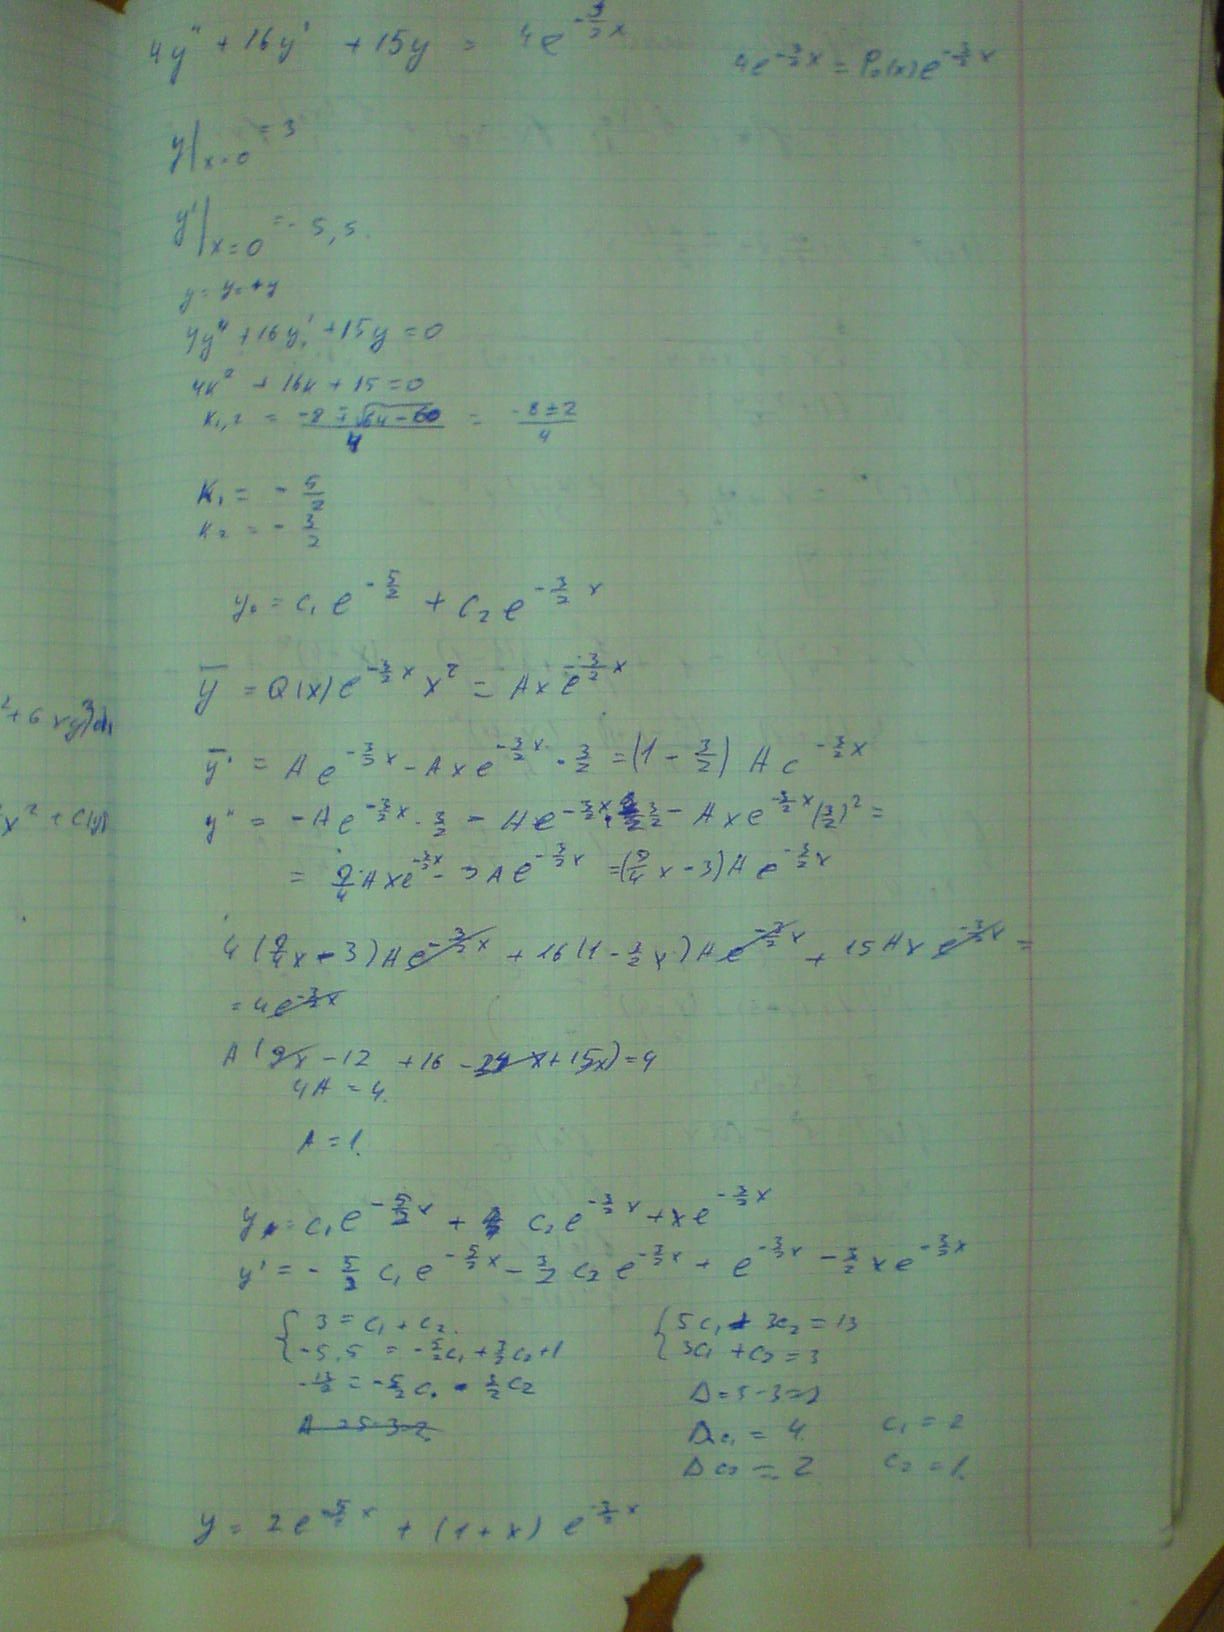 4y'' + 16y' + 15y = 4e^{-\frac{3}{2}x}    4e^{-\frac{3}{2}x} = P_0(x)e^{-\frac{3}{2}x}
y|_{x=0} = 3
y'|_{x=0} = -5,5.
y = y_0 + y
4y'' + 16y' + 15y = 0
4k^2 + 16k + 15 = 0
k_{1,2} = \frac{-8 ± \sqrt{64-60}}{4} = \frac{-8±2}{4}
k_1 = -\frac{5}{2}
k_2 = -\frac{3}{2}
y_0 = c_1 e^{-\frac{5}{2}} + c_2 e^{-\frac{3}{2}x}
\bar{y} = Q(x)e^{-\frac{3}{2}x} x^2 = Ax e^{-\frac{3}{2}x}
\bar{y}' = Ae^{-\frac{3}{2}x} - Axe^{-\frac{3}{2}x} · \frac{3}{2} = (1 - \frac{3}{2}) Ae^{-\frac{3}{2}x}
y'' = -Ae^{-\frac{3}{2}x} · \frac{3}{2} - Ae^{-\frac{3}{2}x} · \frac{3}{2} - Axe^{-\frac{3}{2}x}(\frac{3}{2})^2 =
= \frac{9}{4}Axe^{-\frac{3}{2}x} - 3Ae^{-\frac{3}{2}x} = (\frac{9}{4}x - 3)Ae^{-\frac{3}{2}x}
4(\frac{9}{4}x - 3)Ae^{-\frac{3}{2}x} + 16(1 - \frac{3}{2}x)Ae^{-\frac{3}{2}x} + 15Axe^{-\frac{3}{2}x} =
= 4e^{-\frac{3}{2}x}
A(9x - 12 + 16 - 24x + 15x) = 4
4A = 4.
A = 1.
y = c_1 e^{-\frac{5}{2}x} + c_2 e^{-\frac{3}{2}x} + xe^{-\frac{3}{2}x}
y' = -\frac{5}{2}c_1 e^{-\frac{5}{2}x} - \frac{3}{2}c_2 e^{-\frac{3}{2}x} + e^{-\frac{3}{2}x} - \frac{3}{2}xe^{-\frac{3}{2}x}
{3 = c_1 + c_2.    {5c_1 + 3c_2 = 13
-5,5 = -\frac{5}{2}c_1 + \frac{3}{2}c_2 + 1    3c_1 + c_2 = 3
-\frac{13}{2} = -\frac{5}{2}c_1 - \frac{3}{2}c_2    Δ = 5-3=2
A = 5-3=2.    Δc_1 = 4    c_1 = 2
Δc_2 = 2    c_2 = 1.
y = 2e^{-\frac{5}{2}x} + (1 + x) e^{-\frac{3}{2}x}